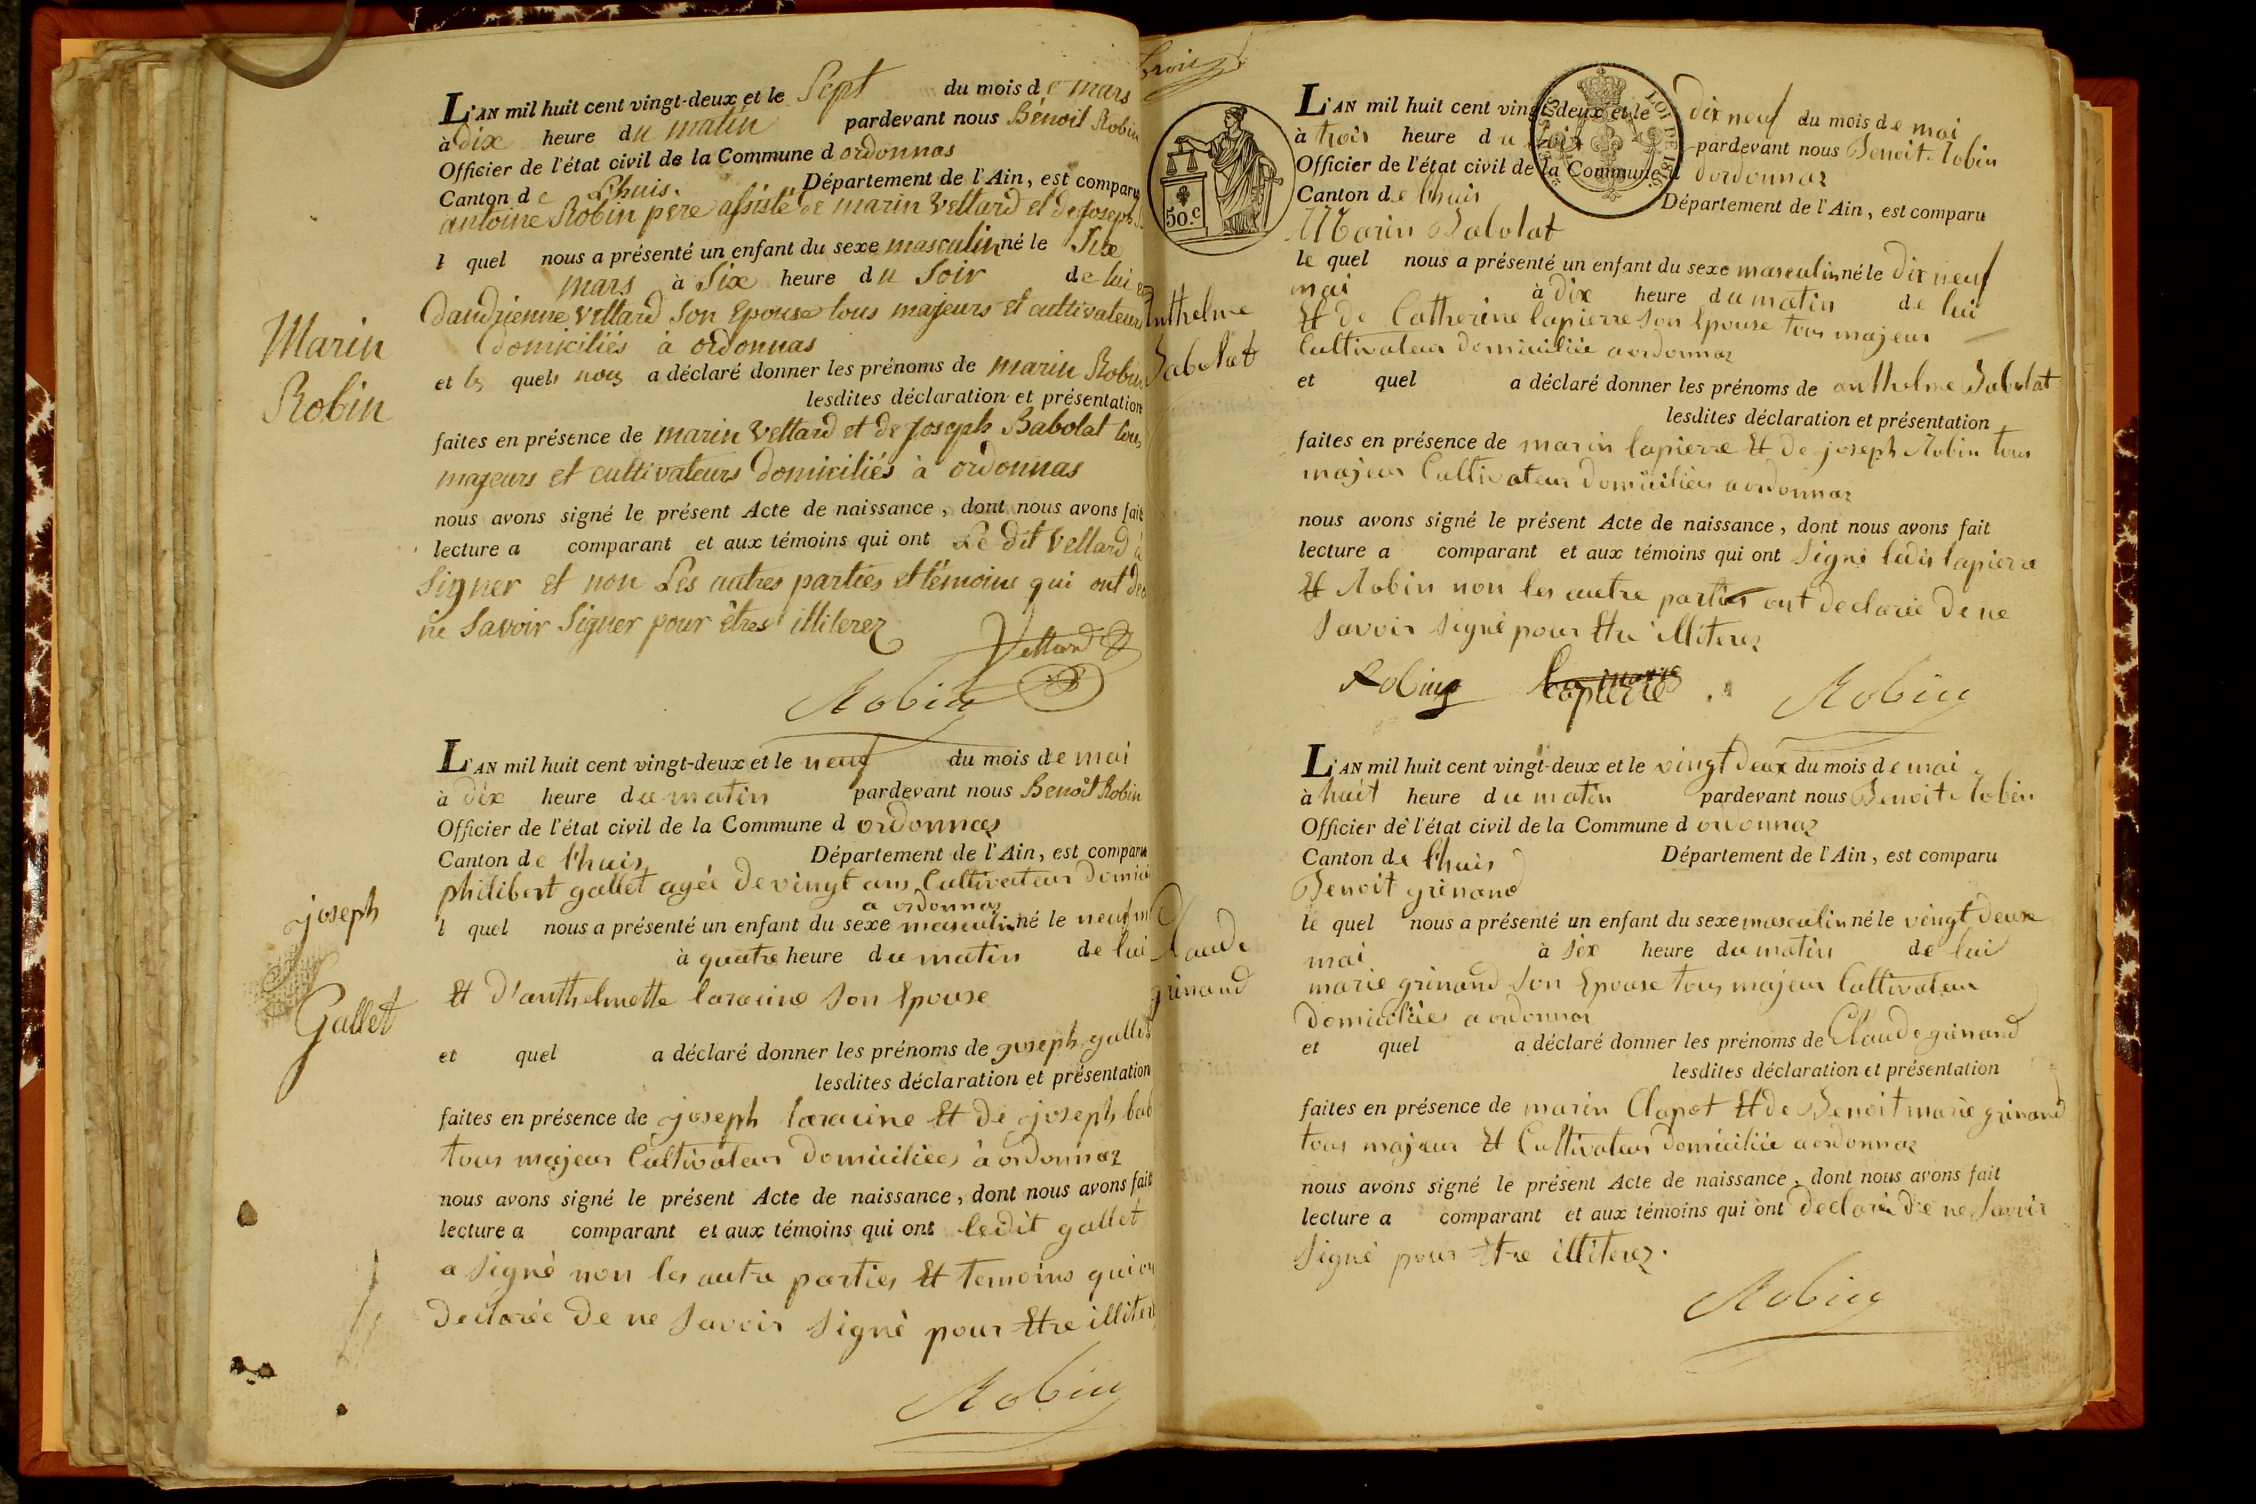 L'AN mil huit cent vingt-deux et le Sept du mois de mars
à dix heure du matin pardevant nous Bénoit Robin
Officier de l'état civil de la Commune d ordonnas
Canton de L'huis. Département de l'Ain, est comparu
antoine Robin père assisté de marin Vettard et de Joseph
l quel nous a présenté un enfant du sexe masculin né le Six
mars à Six heure du Soir de lui et
Marin
Robin
dandrienne Vettard Son Epouse tous majeurs et cultivateurs
domiciliés à ordonnas
et les quels nous a déclaré donner les prénoms de marin Robin
lesdites déclaration et présentation
faites en présence de marin Vettard et de Joseph Babolat tous
majeurs et cultivateurs domiciliés à ordonnas
nous avons signé le présent Acte de naissance, dont nous avons fait
lecture a comparant et aux témoins qui ont Le dit Vettard à
Signer et non Les autres parties et témoins qui ont
ne Savoir Signer pour êtres illiterez
Vettard
Robin
L'AN mil huit cent vingt-deux et le neuf du mois de mai
à dix heure du matin pardevant nous Benoit Robin
Officier de l'état civil de la Commune d ordonnas
Canton de l'huis Département de l'Ain, est comparu
philibert gallet agée de vingt ans Cultivateur
a ordonnas
joseph
Gallet
l quel nous a présenté un enfant du sexe masculin né le neuf
à quatre heure du matin de lui
Et d'anthelmette laracine Son Epouse
et quel a déclaré donner les prénoms de joseph gallet
lesdites déclaration et présentation
faites en présence de joseph laracine Et de joseph bab
tous majeur Cultivateur domiciliées à ordonnaz
nous avons signé le présent Acte de naissance, dont nous avons fait
lecture a comparant et aux témoins qui ont ledit gallet
a Signé non les autre parties Et temoins qui
declarée de ne Savoir Signé pour Etre illiter
Robin
50.c
LOI DE 1816.
L'AN mil huit cent vingt-deux et le dix neuf du mois de mai
à trois heure du Soir pardevant nous Benoit Robin
Officier de l'état civil de la Commune d'ordonnaz
Canton de l'huis Département de l'Ain, est comparu
Marin Babolat
le quel nous a présenté un enfant du sexe masculin né le dix neuf
mai à dix heure du matin de lui
Anthelme
Babolat
Et de Catherine lapierre Son Epouse tous majeur
Cultivateur domiciliée a ordonnaz
et quel a déclaré donner les prénoms de anthelme Babolat
lesdites déclaration et présentation
faites en présence de marin lapierre Et de joseph Robin tous
majeur Cultivateur domiciliées a ordonnaz
nous avons signé le présent Acte de naissance, dont nous avons fait
lecture a comparant et aux témoins qui ont Signé ledis lapierre
Et Robin non les autre parties ont declarée de ne
Savoir Signé pour Etre illiterez
Robin lapierre Robin
L'AN mil huit cent vingt-deux et le vingt deux du mois de mai
à huit heure du matin pardevant nous Benoit Robin
Officier de l'état civil de la Commune d ordonnaz
Canton de l'huis Département de l'Ain, est comparu
Benoit grinand
Claude
grinand
le quel nous a présenté un enfant du sexe masculin né le vingt deux
mai à Six heure du matin de lui
marie grinand Son Epouse tous majeur Cultivateur
Domiciliées a ordonnaz
et quel a déclaré donner les prénoms de Claude grinand
lesdites déclaration et présentation
faites en présence de marin Clapot Et de Benoit marie grinand
tous majeur Et Cultivateur domiciliée a ordonnaz
nous avons signé le présent Acte de naissance, dont nous avons fait
lecture a comparant et aux témoins qui ont declarée de ne Savoir
Signé pour Etre illiterez.
Robin